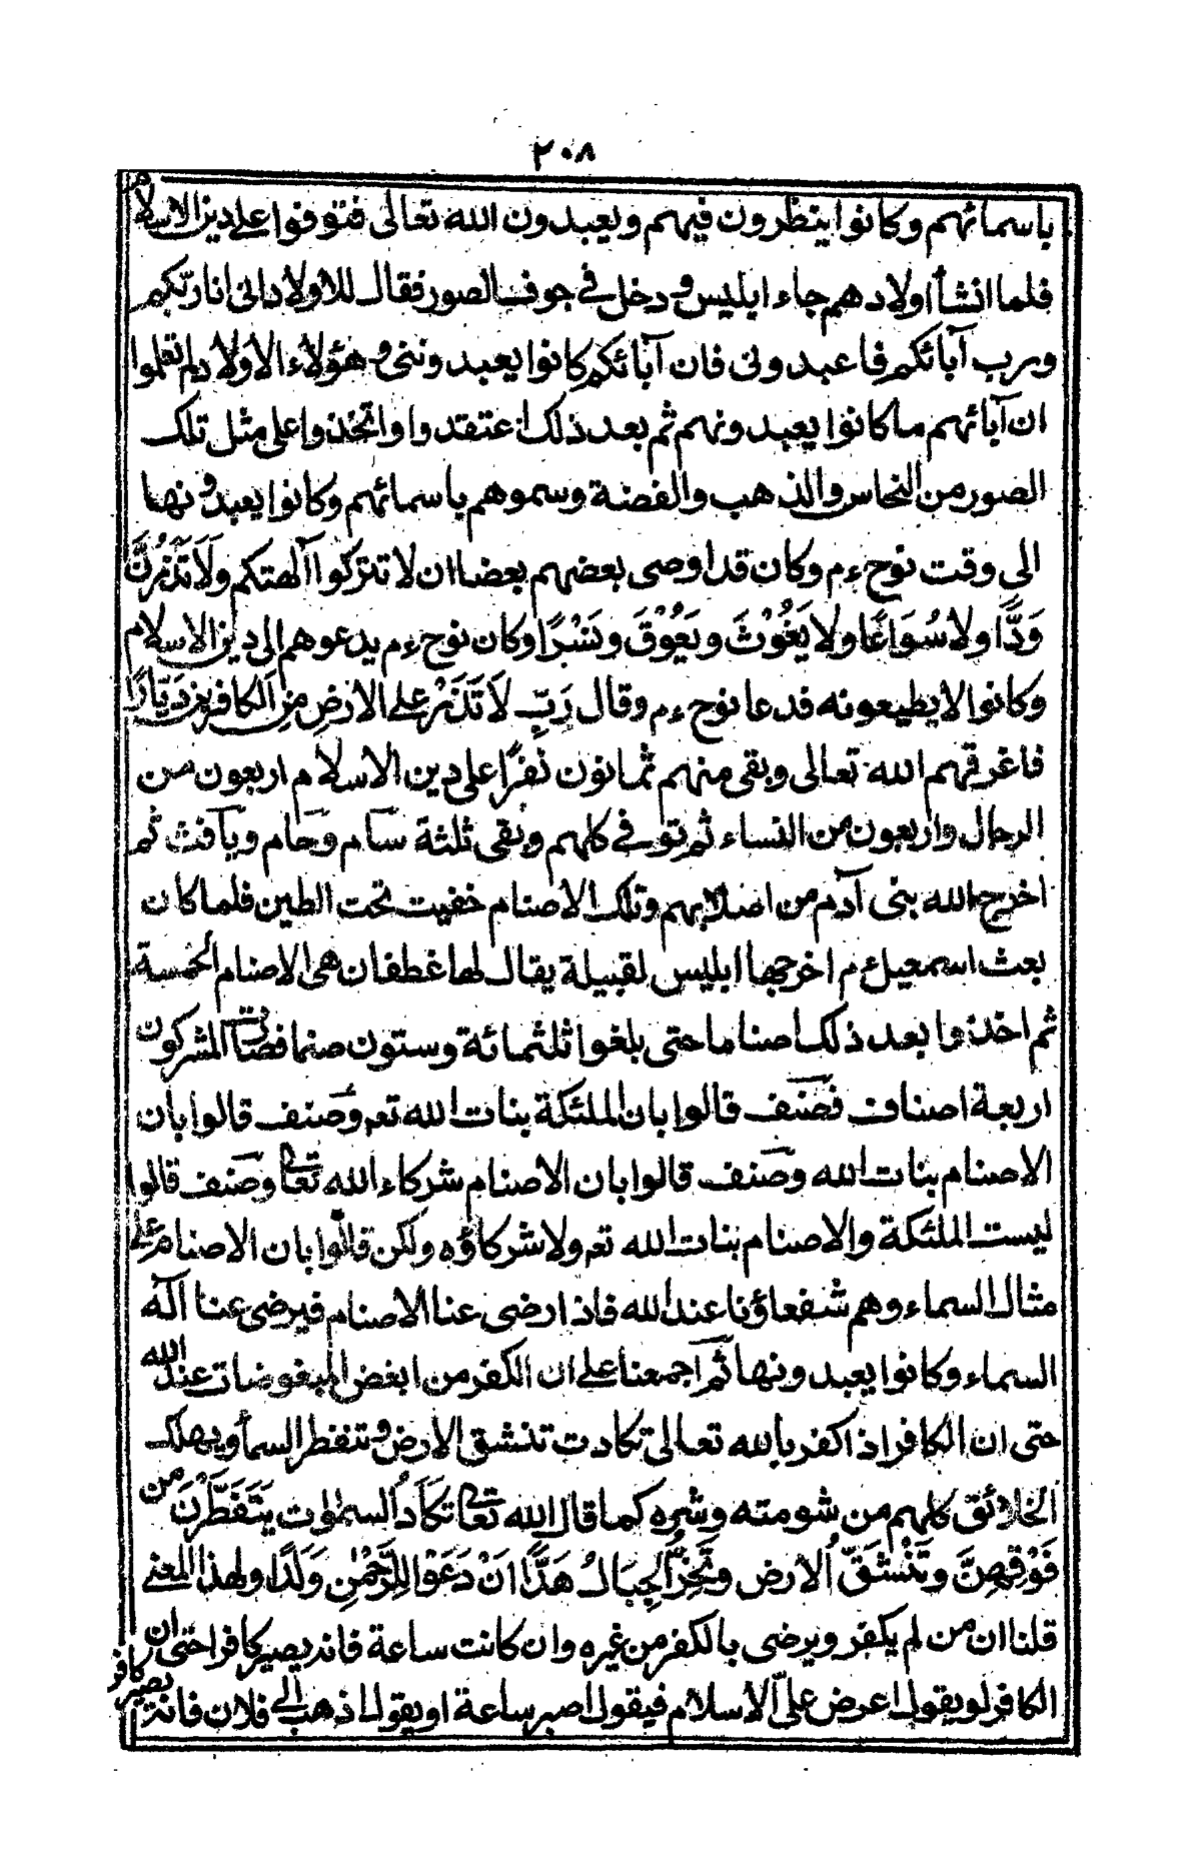 ٢٠٨
باسمائهم وكانوا ينظرون فيهم ويعبدون الله تعالى فتوفوا على دين الاسلام
فلما انشأ اولادهم جاء ابليس ودخل في جوف الصور فقال للاولاد انى انا ربكم
ورب آبائكم فاعبدونى فان آبائكم كانوا يعبدوننى وهؤلاء الاولاد لم تعلموا
ان آبائهم ما كانوا يعبدونهم ثم بعد ذلك اعتقدوا واتخذوا على مثل تلك
الصور من النحاس والذهب والفضة وسموهم باسمائهم وكانوا يعبدونها
الى وقت نوح ءم وكان قد اوصى بعضهم بعضا ان لا تتركوا آلهتكم وَلَا تَذَرُنَّ
وَدًّا ولا سُوَاعًا ولا يَغُوْثَ ويَعُوْقَ ونَسْرًا وكان نوح ءم يدعوهم الى دين الاسلام
وكانوا لا يطيعونه قد عا نوح ءم وقال رَبِّ لَا تَذَرْ على الارضِ مِنَ الكافرين دَيَّارًا
فاغرقهم الله تعالى وبقى منهم ثمانون نفرًا على دين الاسلام اربعون من
الرجال واربعون من النساء ثم توفى كلهم وبقى ثلثة سام وحام ويافث ثم
اخرج الله بنى آدم من اصلابهم وتلك الاصنام خفيت تحت الطين فلما كان
بعث اسمعيل ءم اخرجها ابليس لقبيلة يقال لها غطفان هى الاصنام الخمسة
ثم اخذوا بعد ذلك اصناما حتى بلغوا ثلثمائة وستون صنما فصارت المشركون
اربعة اصناف فصنف قالوا بان الملئكة بنات الله تعم وصنف قالوا بان
الاصنام بنات الله وصنف قالوا بان الاصنام شركاء الله تعالى وصنف قالوا
ليست الملئكة والاصنام بنات الله تعم ولا شركاؤه ولكن قالوا بان الاصنام على
مثال السماء وهم شفعاؤنا عند الله فاذا رضى عنا الاصنام فيرضى عنا آله
السماء وكانوا يعبدونها ثم اجمعنا على ان الكفر من ابغض المبغوضات عند الله
حتى ان الكافر اذا كفر بالله تعالى تكادت تنشق الارض وتنفطر السماء ويهلك
الخلائق كلهم من شومته وشره كما قال الله تعالى تكَادُ السمٰوٰت يتَفَطَّرْنَ من
فَوْقِهِنَّ وتَنْشَقُّ الارض وتَخِرُّ الجبالُ هَدًّا انْ دَعَوْا لِلرَّحْمٰنِ وَلَدًا ولهذا المعنى
قلنا ان من لم يكفر ويرضى بالكفر من غيره وان كانت ساعة فانه يصير كافرا حتى ان
الكافر لو يقول اعرض علىّ الاسلام فيقول اصبر ساعة او يقول اذهب الى فلان فانه يصير كافر